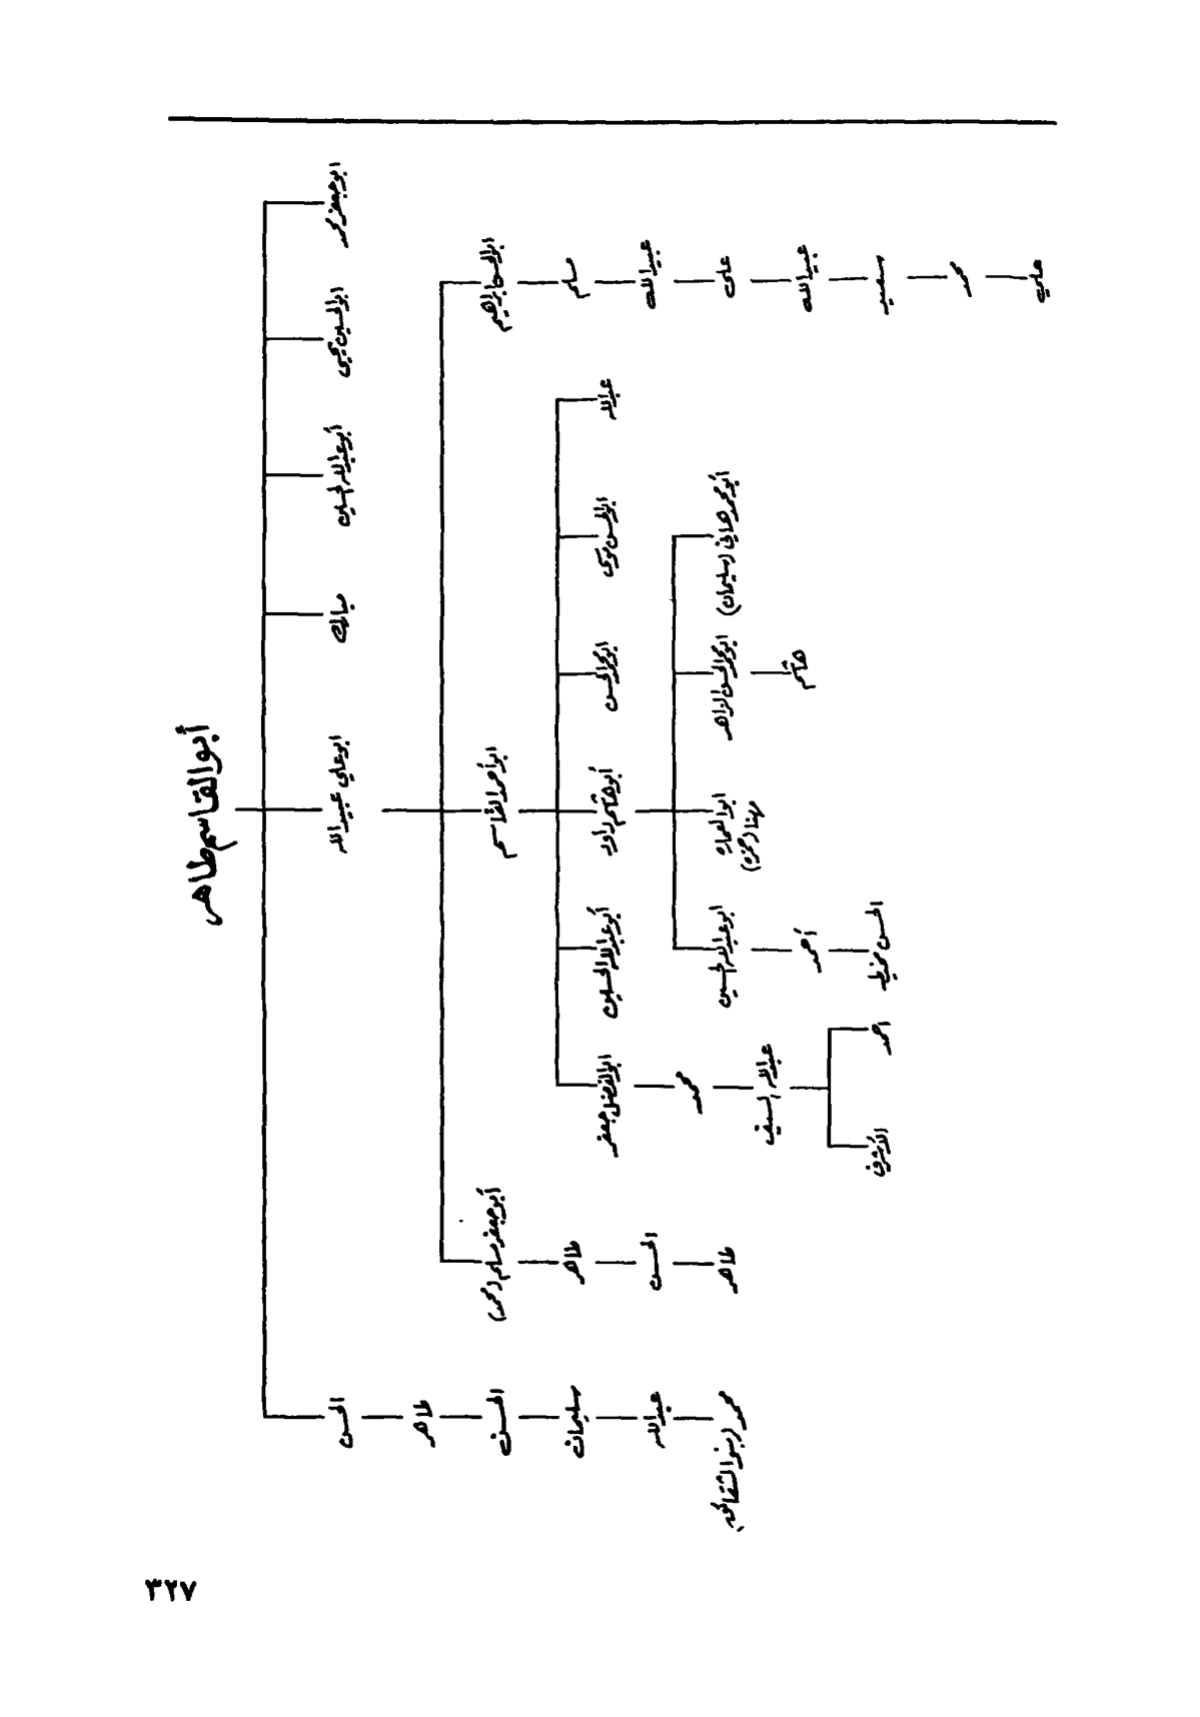 أبوالقاسم طاهر
ابوجعفر محمد
ابوالحسين يحيى
أبوعبدالله الحسين
مبارك
ابوعلي عبيدالله
الحسن
طاهر
الحسن
سليمان
عبدالله
محمد (بنو الشقائق)
ابوالحسن ابراهيم
مسلم
عبيدالله
علي
عبيدالله
سعيد
محمد
علي
ابوأحمد القاسم
أبوجعفر مسلم (محمد)
طاهر
الحسن
طاهر
عبدالله
ابوالحسن موسى
ابومحمد الحسن
أبوهاشم داود
أبوعبدالله الحسين
ابوالفضل جعفر
محمد
عبدالله السيف
احمد
الأشرف
أبومحمد هاني (سليمان)
ابومحمد الحسن الزاهر
هاشم
ابوالعمارة
مهنا (حمزة)
ابوعبدالله الحسين
أحمد
الحسن مخيط
٣٢٧